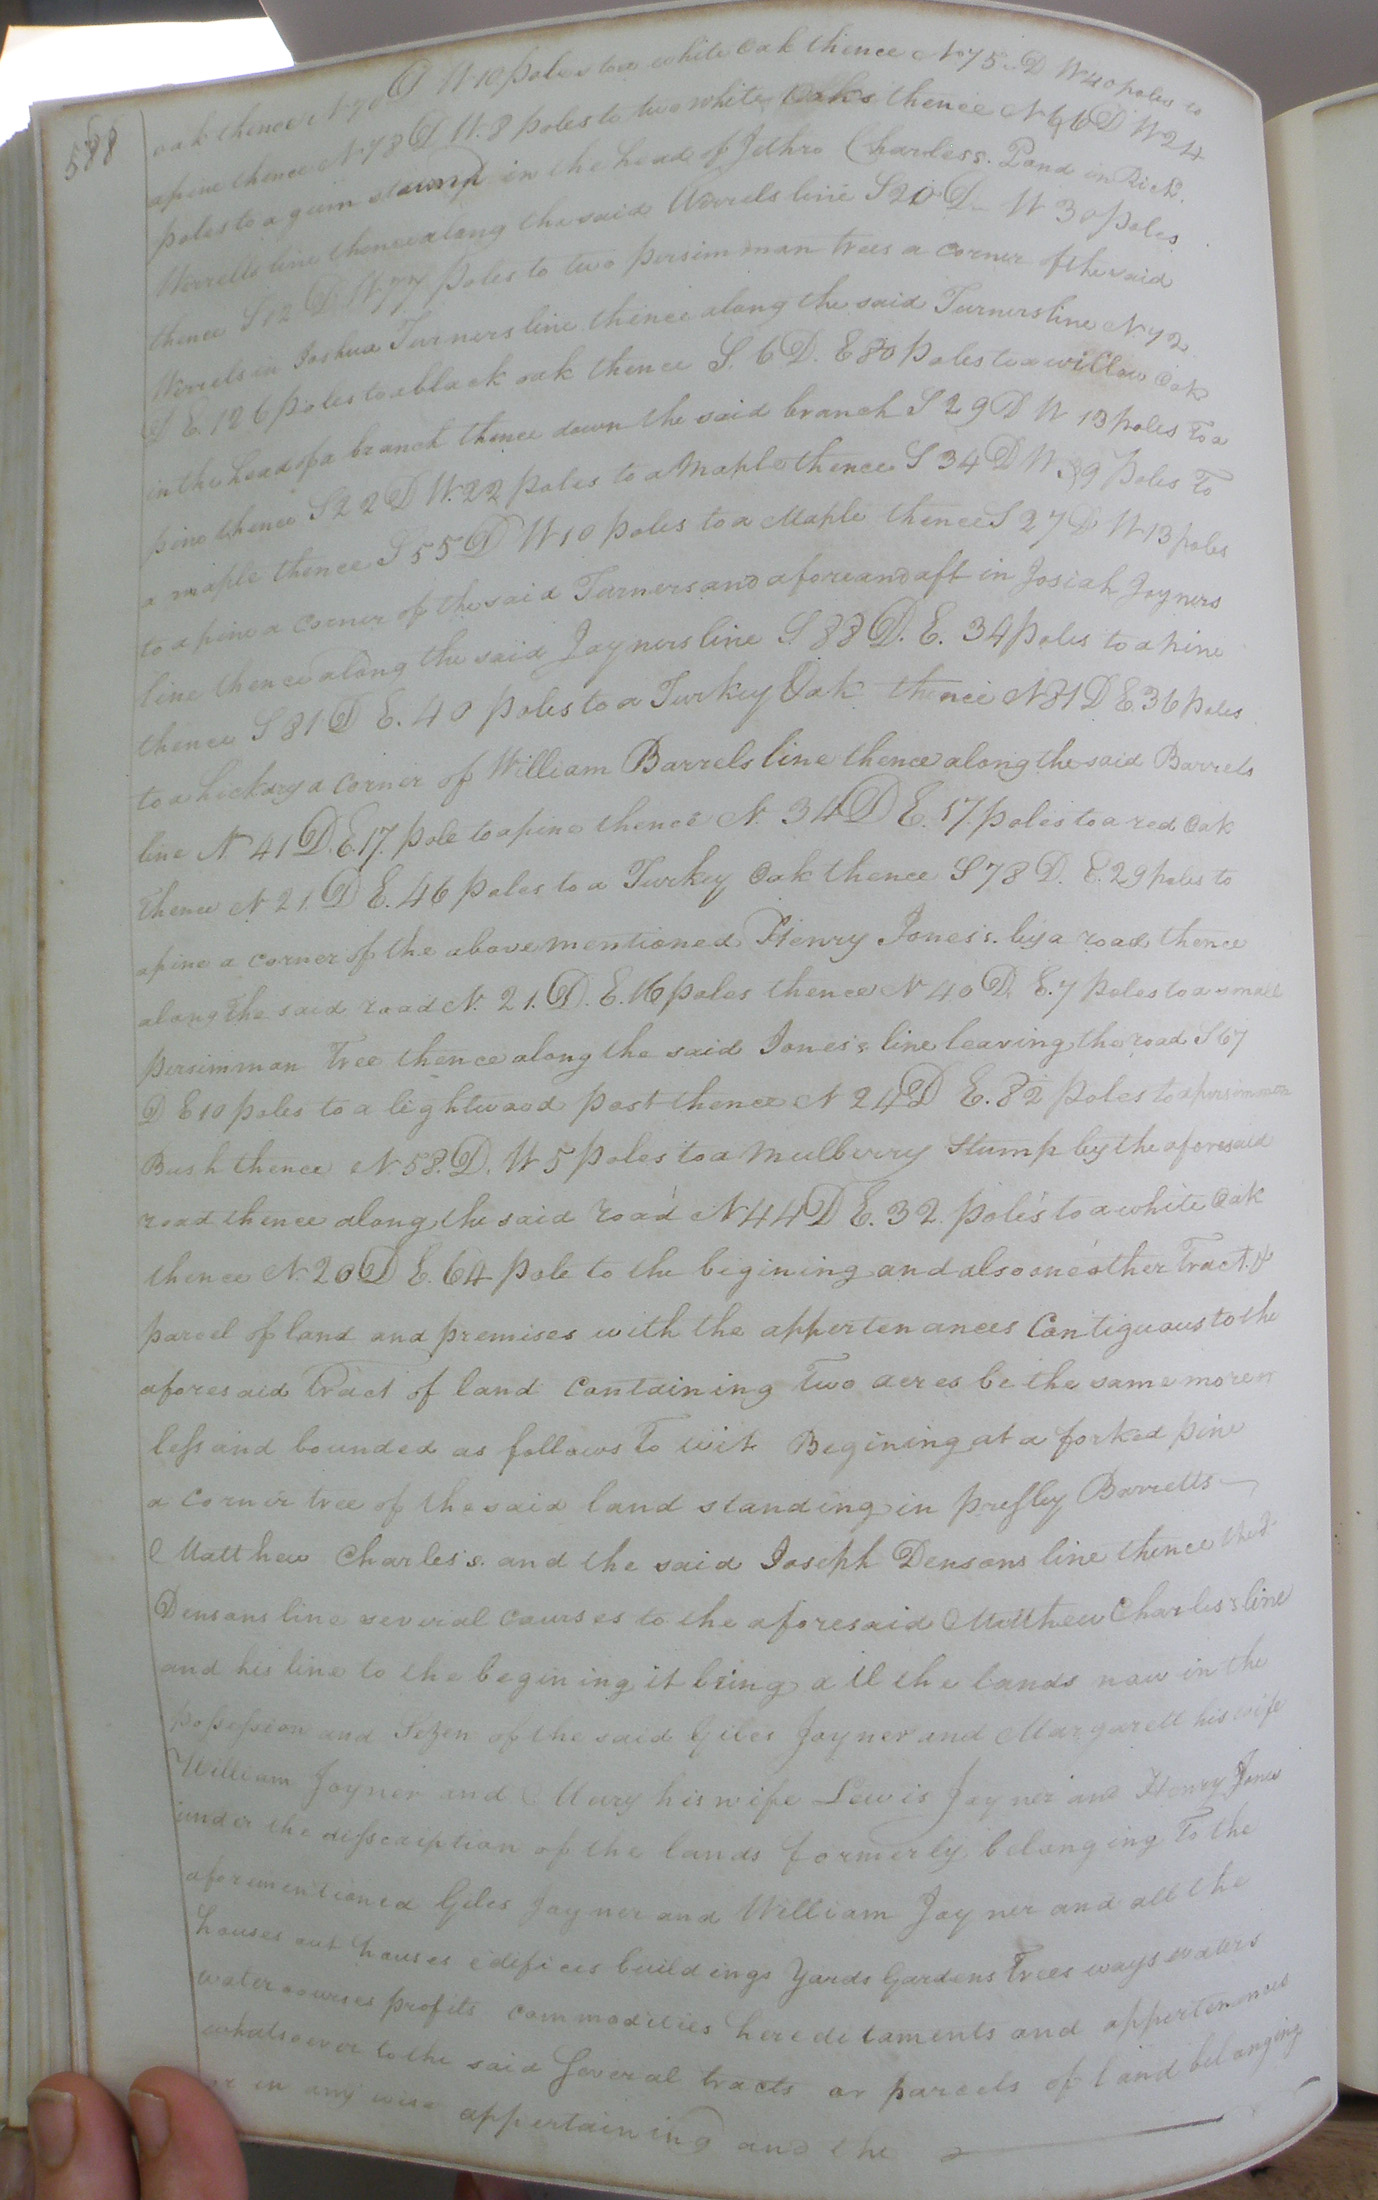 588
oak thence N 70 D W 10 poles to a white Oak thence N 75 D W 40 poles to
a pine thence N 78 D W. 8 poles to two white Oaks thence N 66 D W 24
poles to a gum stump in the head of Jethro Charless. Pond in Richd.
Worrells line thence along the said Worrels line S 20 D W 30 poles
thence S 12 D W 77 poles to two persimman trees a corner of the said
Worrels in Joshua Turners line thence along the said Turners line N. 72
D E. 126 poles to a black oak thence S. 6 D. E 80 poles to a willow Oak
in the head of a branch thence down the said branch S 29 D W 13 poles to a
pine thence S 22 D W. 22 poles to a Maple thence S 34 D W. 39 poles to
a maple thence S 55 D W 10 poles to a Maple thence S 27 D W 13 poles
to a pine a corner of the said Turners and a fore and aft in Josiah Joyners
line thence along the said Joyners line S. 88 D. E. 34 poles to a pine
thence S 81 D E. 40 poles to a Turkey Oak thence N 81 D E 36 poles
to a hickory a corner of William Barrels line thence along the said Barrels
line N 41 D. E. 17. pole to a pine thence N. 34 D E. 57. poles to a red Oak
thence N 21. D E. 46 poles to a Turkey Oak thence S 78 D. E. 29 poles to
a pine a corner of the above mentioned Henry Jones's. by a road thence
along the said road N. 21. D. E. 16 poles thence N 40 D. E. 7 poles to a small
persimman Tree thence along the said Jones's line leaving the road S 67
D E 10 poles to a lightwood post thence N 24 D E. 82 poles to a persimmon
Bush thence N 58. D. W 5 poles to a mulberry stump by the aforesaid
road thence along the said road N 44 D E. 32 poles to a white Oak
thence N. 20 D E. 64 pole to the begining and also one other Tract &
parcel of land and premises with the appertenances Contiguous to the
aforesaid Tract of land Containing Two acres be the same more or
less and bounded as follows To wit Begining at a forked pine
a corner tree of the said land standing in Presley Barretts
Matthew Charles's. and the said Joseph Densons line thence the sd.
Densons line several courses to the aforesaid Matthew Charles's line
and his line to the begining it being all the lands now in the
possession and Sezen of the said Giles Joyner and Margarett his wife
William Joyner and Mary his wife Lewis Joyner and Henry Jones
under the disscription of the lands formerly belonging To the
aforementioned Giles Joyner and William Joyner and all the
houses out houses edifices buildings Yards Gardens Trees ways waters
water courses profits commodities hereditaments and appertenances
whatsoever to the said several tracts or parcels of land belonging
or in any wise appertaining and the